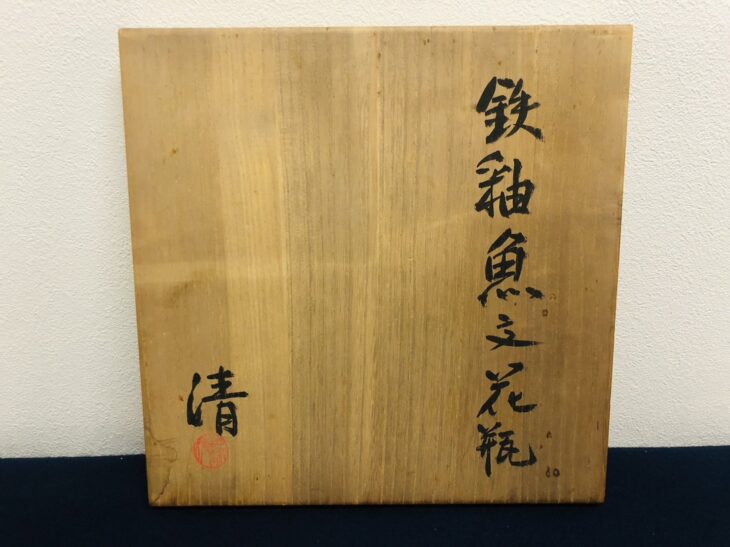 鉄釉魚文花瓶
清